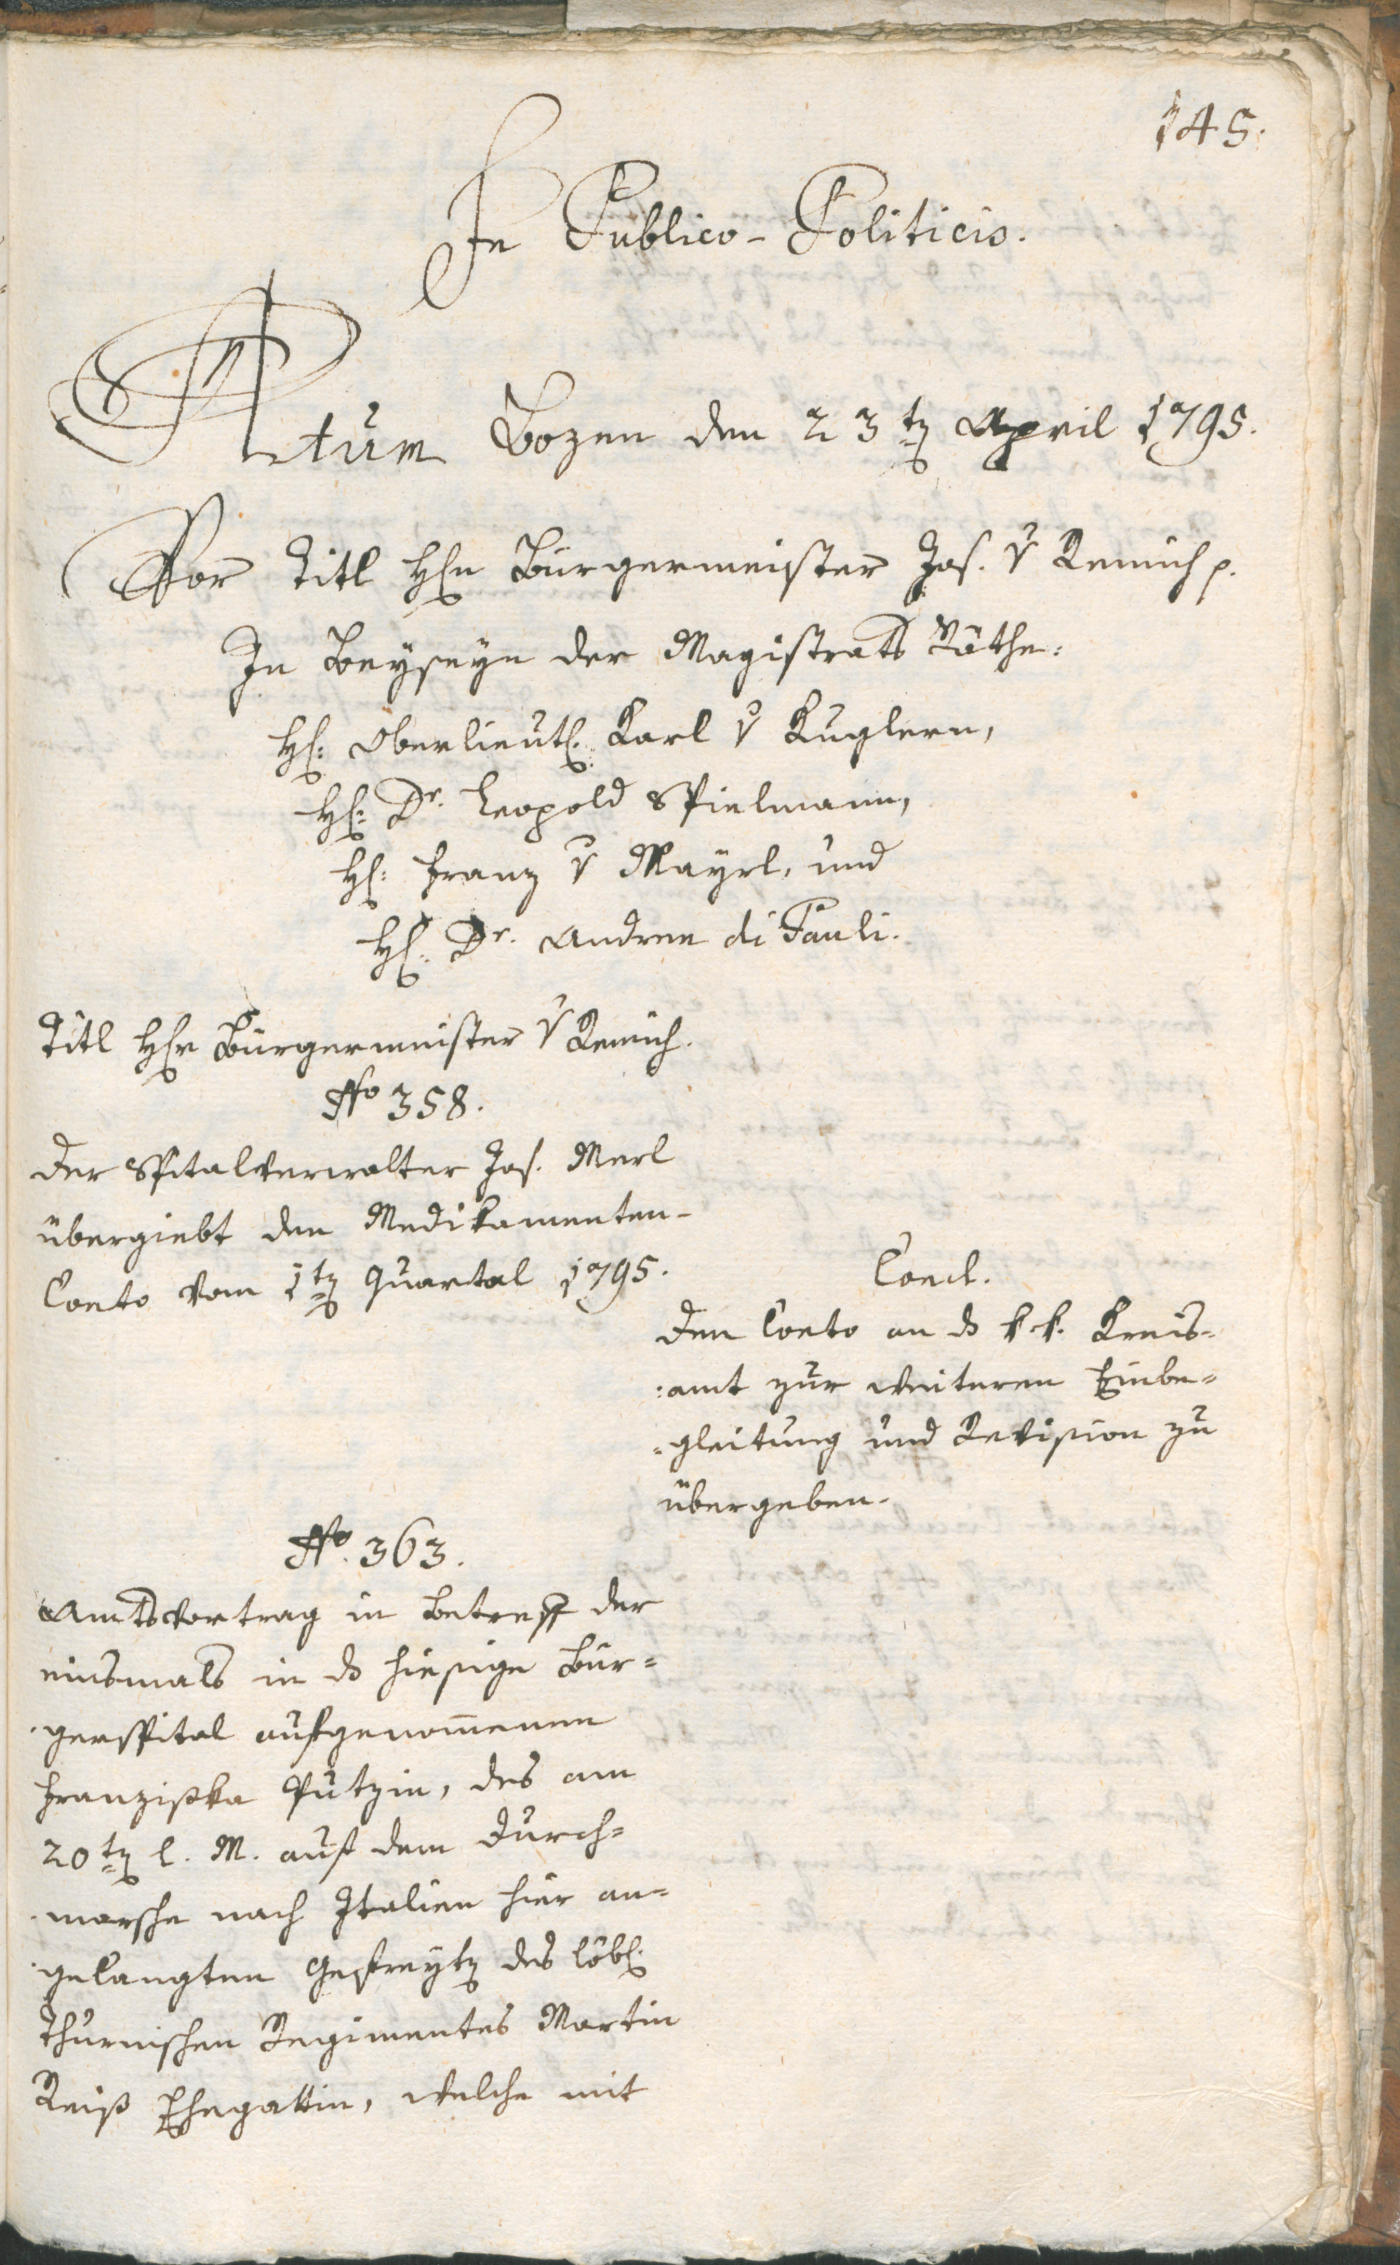 145.
In Publico-Politicis.
Actum Bozen den 23t April 1795.
Vor Titl Hln Bürgermeister Jos. v Remich p.
In Beyseyn der Magistrats Räthe:
H: Oberlieut. Karl v Kuglern,
H: Dr. Leopold Spielmann,
H: Franz v Mayrl, und
H: Dr. Andree di Pauli.
Titl Hlr Bürgermeister v Remich.
No 358.
Der Spitalverwalter Jos. Merl
übergiebt den Medikamenten-
Conto vom 1t Quartal 1795.
Concl.
Den Conto an ds k.k. Kreis-
:amt zur weiteren Einbe-
-gleitung und Revision zu
übergeben.
No. 363.
Amtsvortrag in Betreff der
einsmals in ds hiesige Bür-
gerspital aufgenommenen
Franziska Putzin, des am
20t l. M. auf dem Durch-
marsche nach Italien hier an-
gelangten Gefreyt des löbl.
Thurnischen Regimentes Martin
Reiß Ehegattin, welche mit